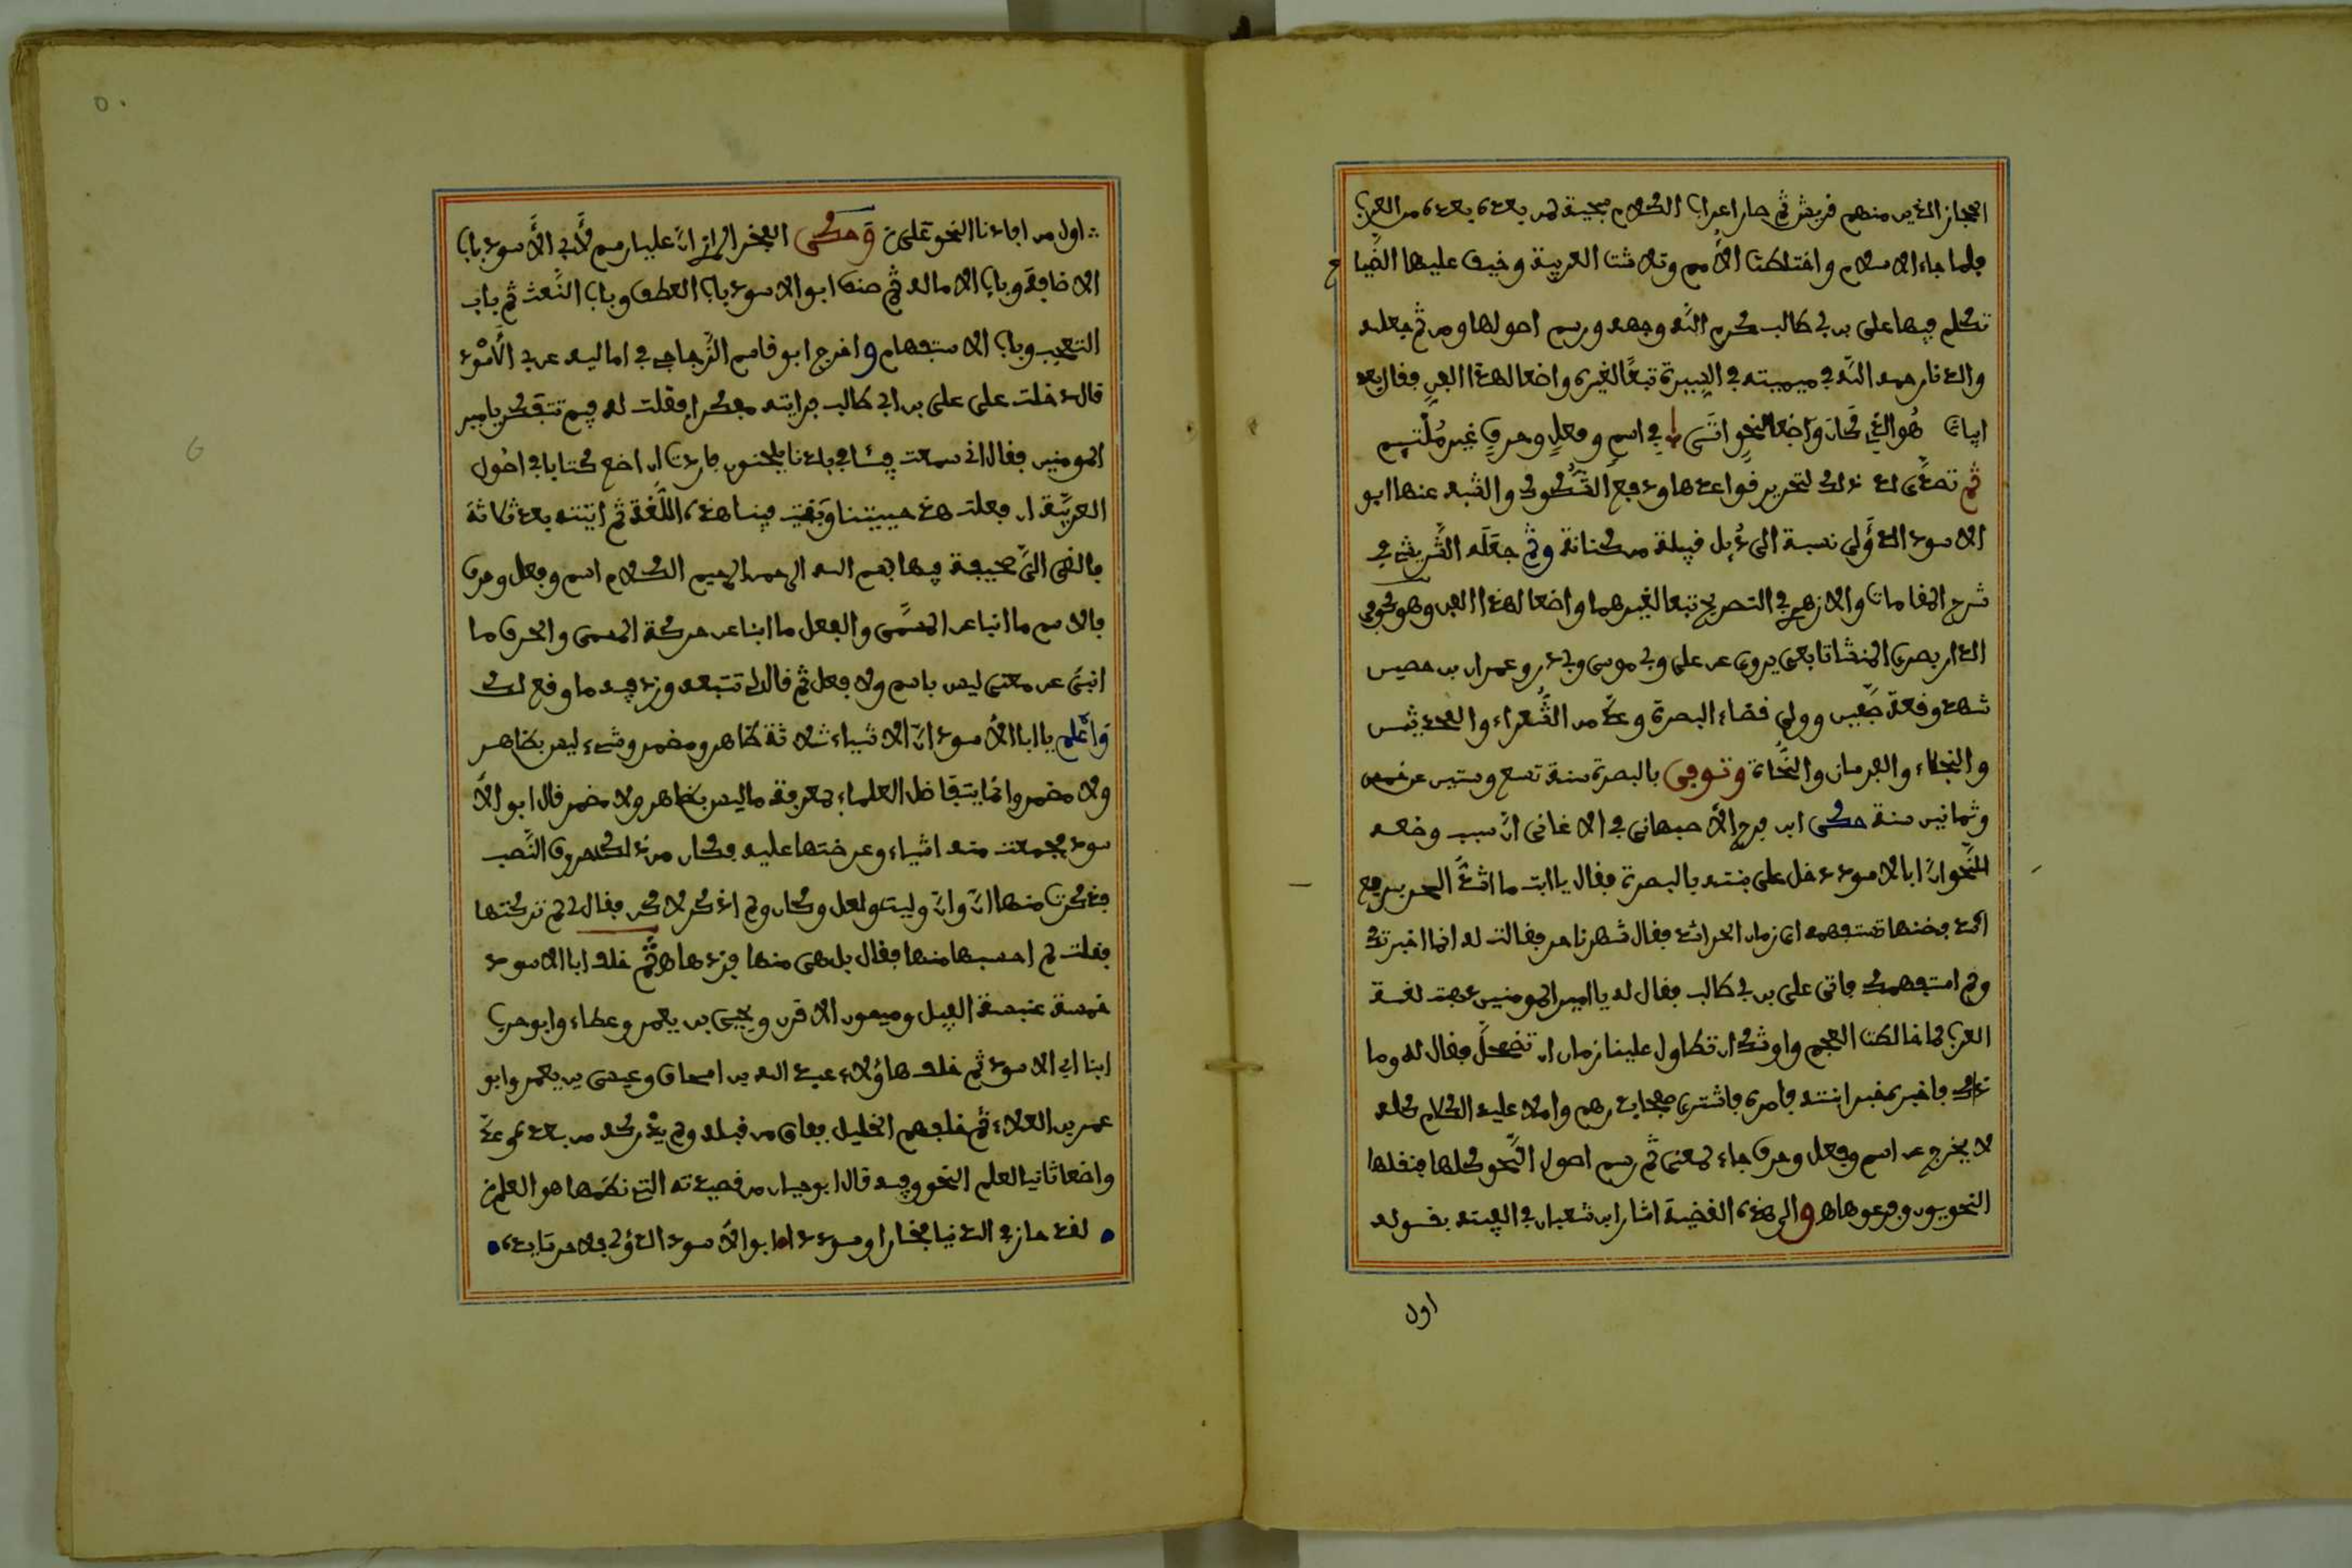 الحجاز الذين منهم قريش ثم صار اعراب الكلام سجية لمن بعد بعدهم من العرب
فلما جاء الاسلام واختلطت الأمم وتلاشت العربية وخيف عليها الضياع
تكلم فيها علي بن ابي طالب كرم الله وجهه ورسم اصولها ومن ثم جعله
والدنا رحمه الله في ميميته في السيرة تبعًا لغيره واضعا لهذا الفن فقال بعد
ابيات هُو الذي كَانَ وَاضعا لنحوٍ أتَى في اسمٍ وفعلٍ وحرفٍ غيرِ مُلْتَئِم
ثم تصدَّى لذلك لتحرير قواعدها ودفع الشُّكوك والشبه عنها ابو
الاسود الدؤَلي نسبة الى دُئِل قبيلة من كنانة وثم جعَلَه الشَّريشي في
شرح المقامات والازهري في التصريح تبعا لغيرهما واضعا لهذا الفن وهو كوفي
الدار بصري المنشا تابعي يروي عن علي وابي موسى وابي ذر وعمران بن حصين
شهد وقعة صِفّين وولي قضاء البصرة وعدَّ من الشُّعراء والمحدثين
والبخلاء والعرجان والنُّحاة وتوفي بالبصرة سنة تسع وستين عن خمس
وثمانين سنة حكى ابو فرج الأصبهاني في الاغاني انّ سبب وضعه
للنَّحو انّ ابا الاسود دخل على بنته بالبصرة فقال يا ابت ما اشدُّ الحر برفع
اشد فظنها تستفهمه اي زمان الحر اشد فقال شهرنا حر فقالت له انما اخبرتك
ولم استفهمك فاتى علي بن ابي طالب فقال له يا امير المومنين ذهبت لغة
العرب لما خالطت العجم واوشك ان تطاول علينا زمان ان تضمحلَّ فقال له وما
ذلك فاخبره بخبر ابنته فامره فاشترى صحفا بدرهم واملا عليه الكلام كله
لا يخرج عن اسم وفعل وحرف جاء لمعنى ثم رسم اصول النَّحو كلها فنقلها
النحويون وفرعوها هـ والى هذه القضية اشار ابن شعبان في الفيته بقوله
اول
∴ اول من افادنا النحو عَلِيٌّ وَحكى الفخر الرازي انّ عليا رسم لأبي الأسود باب
الاضافة وباب الامالة ثم صنف ابو الاسود باب العطف وباب النَّعت ثم باب
التعجب وباب الاستفهام واخرج ابو قاسم الزَّجاجي في اماليه عن ابي الأَسْوَد
قال دخلت على علي بن ابي طالب فرايته مفكرا فقلت له فيم تتفكر يا امير
المومنين فقال اني سمعت في بلدنا لحنون فاردت ان اضع كتابا في اصُول
العربيَّة ان فعلت هذا حييتنا وَبَقيت فينا هذه اللُّغة ثم اتيته بعد ثلاثة
فالقى اليَّ صحيفة فيها بسم الله الرحمن الرحيم الكلام اسم وفعل وحرف
فالاسم ما انبا عن المسَمَّى والفعل ما انبا عن حركة المسمى والحرف ما
انبئ عن معنى ليس باسم ولا فعل ثم قال لي تتبعه وزد فيه ما وقع لك
وَاعْلَم يا ابا الأسود انّ الاشياء ثلاثة ظاهر ومضمر وشيء ليس بظاهر
ولا مضمر وانما يتفاضل العلماء بمعرفة ما ليس بظاهر ولا مضمر قال ابو الأ
سود فجمعت منه اشياء وعرضتها عليه فكان من ذلك حروف النَّصب
فذكرت منها انّ وأنّ وليت ولعل وكأن ولم اذكر لاكن فقال لي لم تركتها
فقلت لم احسبها منها فقال بل هي منها فزدها هـ ثم خلف ابا الاسود
خمسة عنبسة الفيل وميمون الاقرن ويحيى بن يعمر وعطاء وابو حرب
ابنا ابي الاسود ثم خلف هاؤلاء عبد الله بن اسحاق وعيسى بن يعمر وابو
عمر بن العلاء ثم خلفهم الخليل ففاق من قبله ولم يدركه من بعده وعدّ
واضعا ثانيا لعلم النحو وفيه قال ابو حيان من قصيدته التي نظمها هو العلم
لقد حاز في الدنيا فخارا وسوددا ابو الأسود الدؤلي